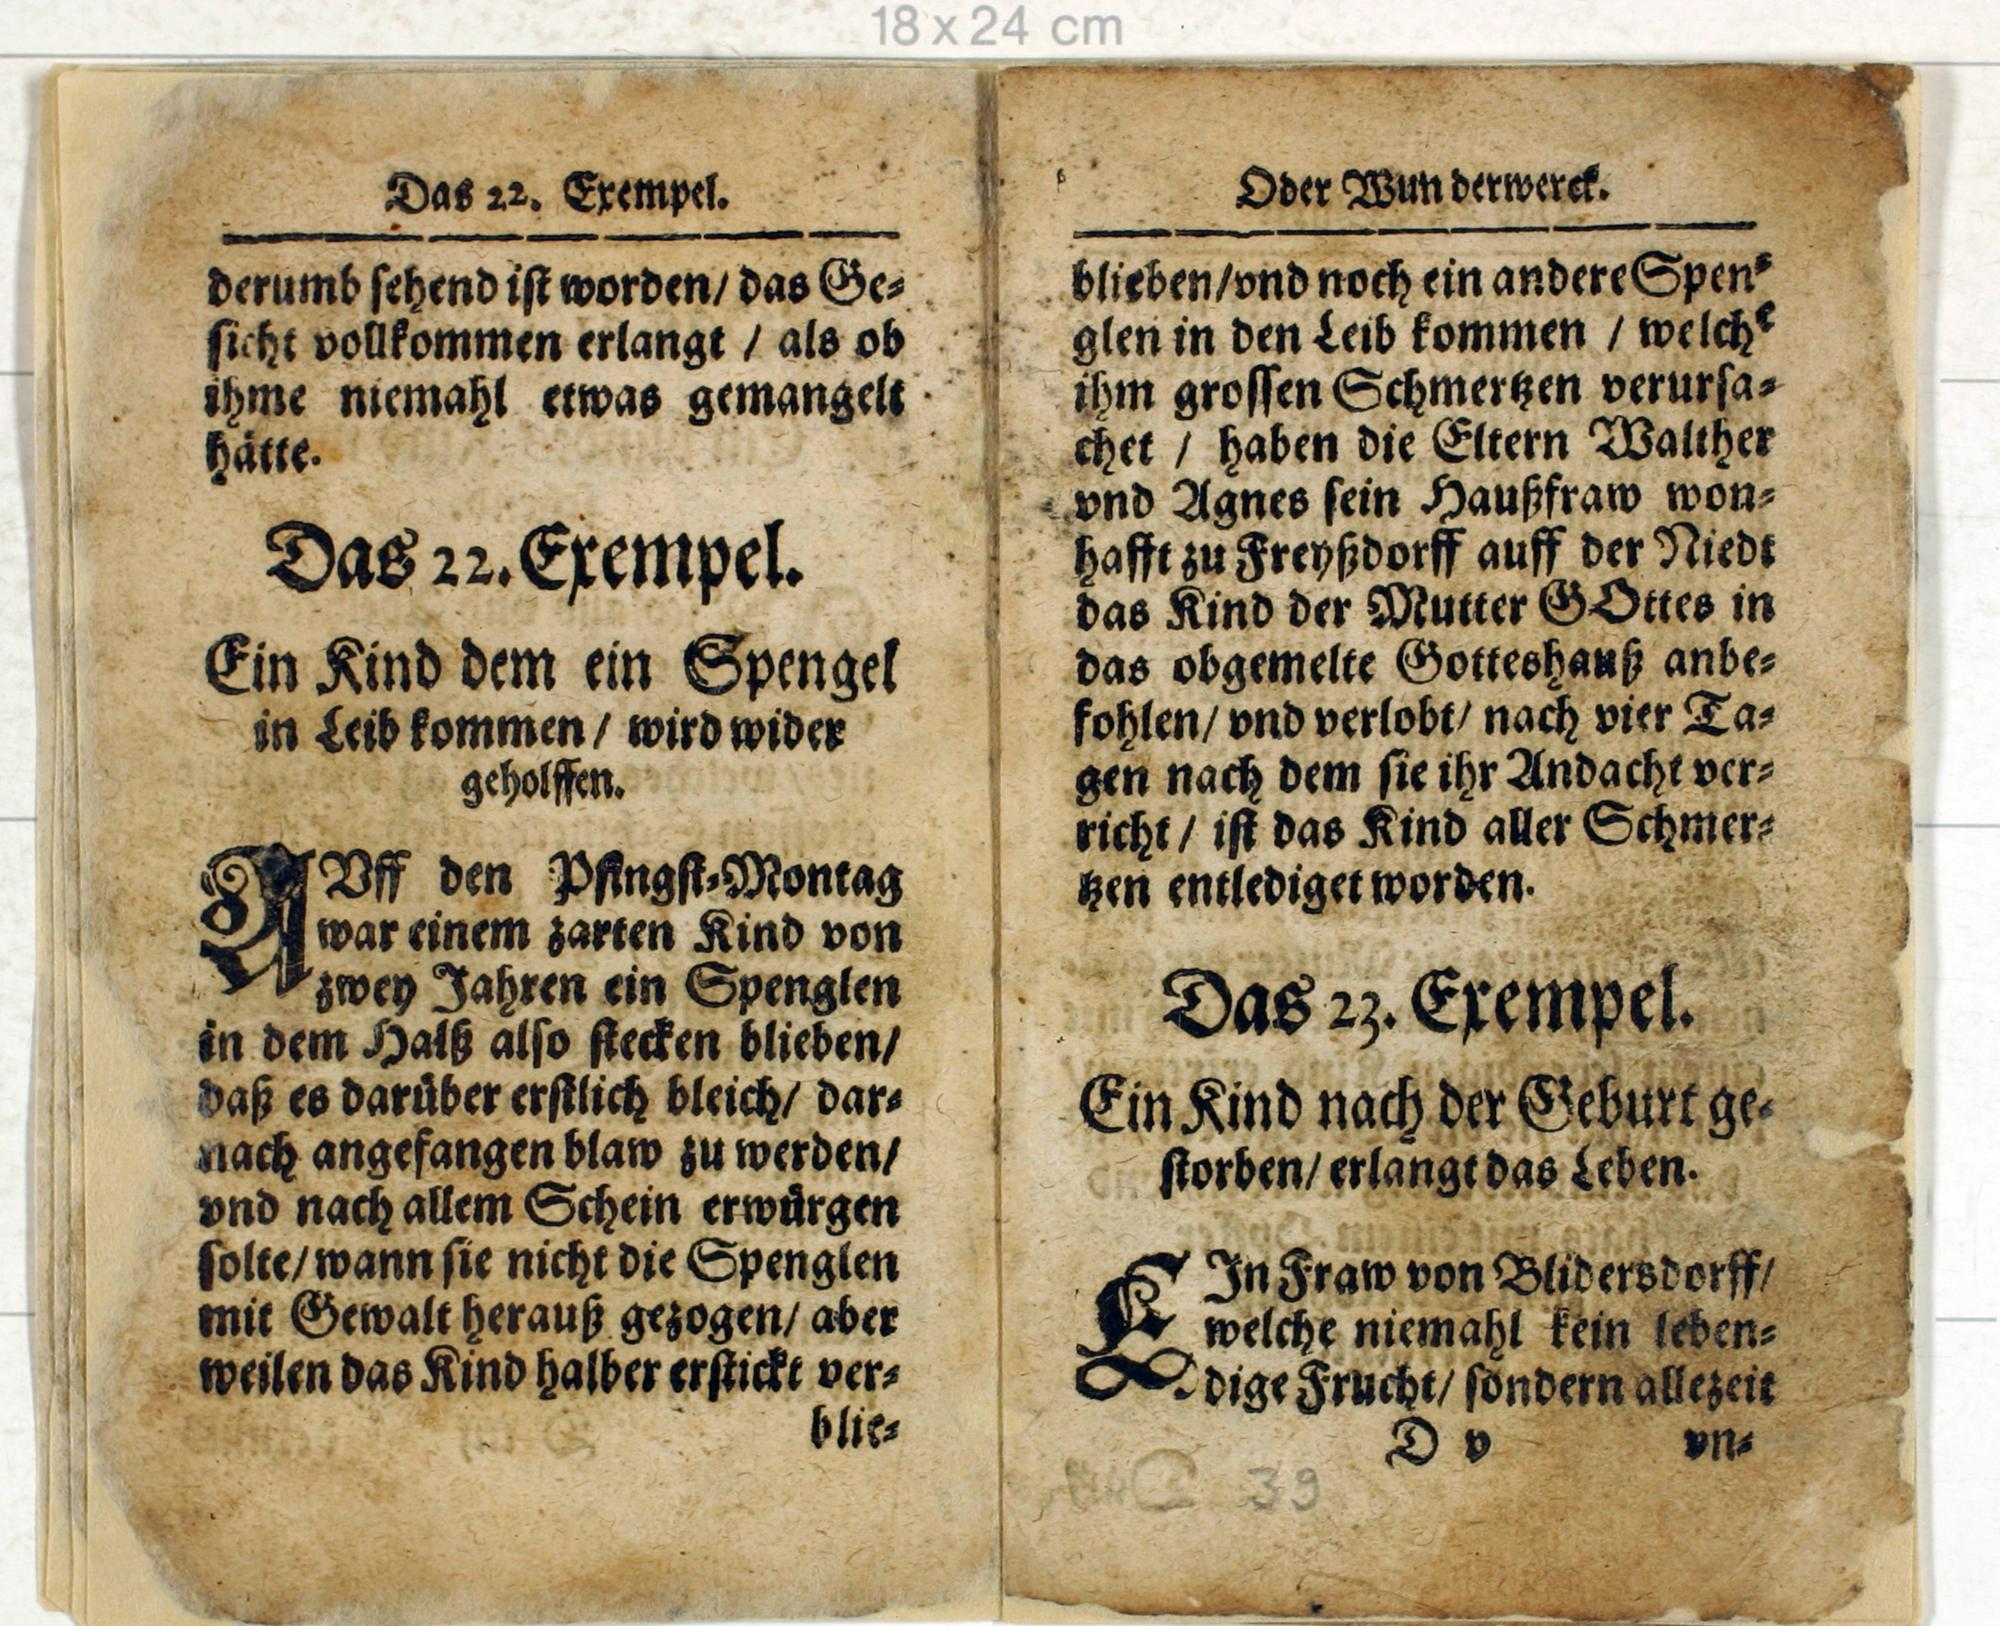 18 x 24 cm
Das 22. Exempel.
derumb sehend ist worden/ das Ge-
sicht vollkommen erlangt / als ob
ihme niemahl etwas gemangelt
hätte.
Das 22. Exempel.
Ein Kind dem ein Spengel
in Leib kommen / wird wider
geholffen.
AUff den Pfingst-Montag
war einem zarten Kind von
zwey Jahren ein Spenglen
in dem Halß also stecken blieben/
daß es darüber erstlich bleich/ dar-
nach angefangen blaw zu werden/
vnd nach allem Schein erwürgen
solte/ wann sie nicht die Spenglen
mit Gewalt herauß gezogen/ aber
weilen das Kind halber erstickt ver-
blie-
Oder Wunderwerck.
blieben/ vnd noch ein andere Spen-
glen in den Leib kommen / welche
ihm grossen Schmertzen verursa-
chet / haben die Eltern Walther
vnd Agnes sein Haußfraw won-
hafft zu Freyßdorff auff der Niedt
das Kind der Mutter GOttes in
das obgemelte Gotteshauß anbe-
fohlen/ vnd verlobt/ nach vier Ta-
gen nach dem sie ihr Andacht ver-
richt / ist das Kind aller Schmer-
tzen entlediget worden.
Das 23. Exempel.
Ein Kind nach der Geburt ge-
storben/ erlangt das Leben.
EIn Fraw von Blidersdorff/
welche niemahl kein leben-
dige Frucht/ sondern allezeit
D v vn-
39